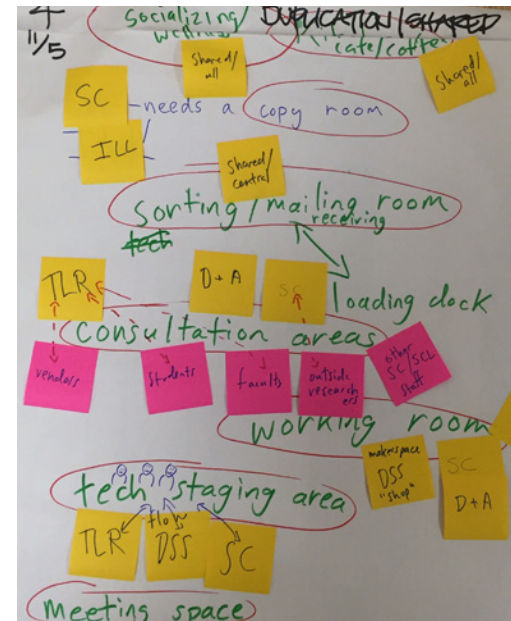 4
11/5
Socializing/ DUPLICATION/SHARED
cafe/coffee
Shared/
all
Shared/
all
SC
needs a copy room
ILL
Shared/
central
Sorting/mailing room
receiving
tech
TLR
D+A
SC
loading dock
Consultation areas
vendors
students
faculty
outside
research
ers
other
SC/SCL
staff
working room
makerspace
DSS
"shop"
SC
D+A
tech staging area
flow
TLR
DSS
SC
Meeting space